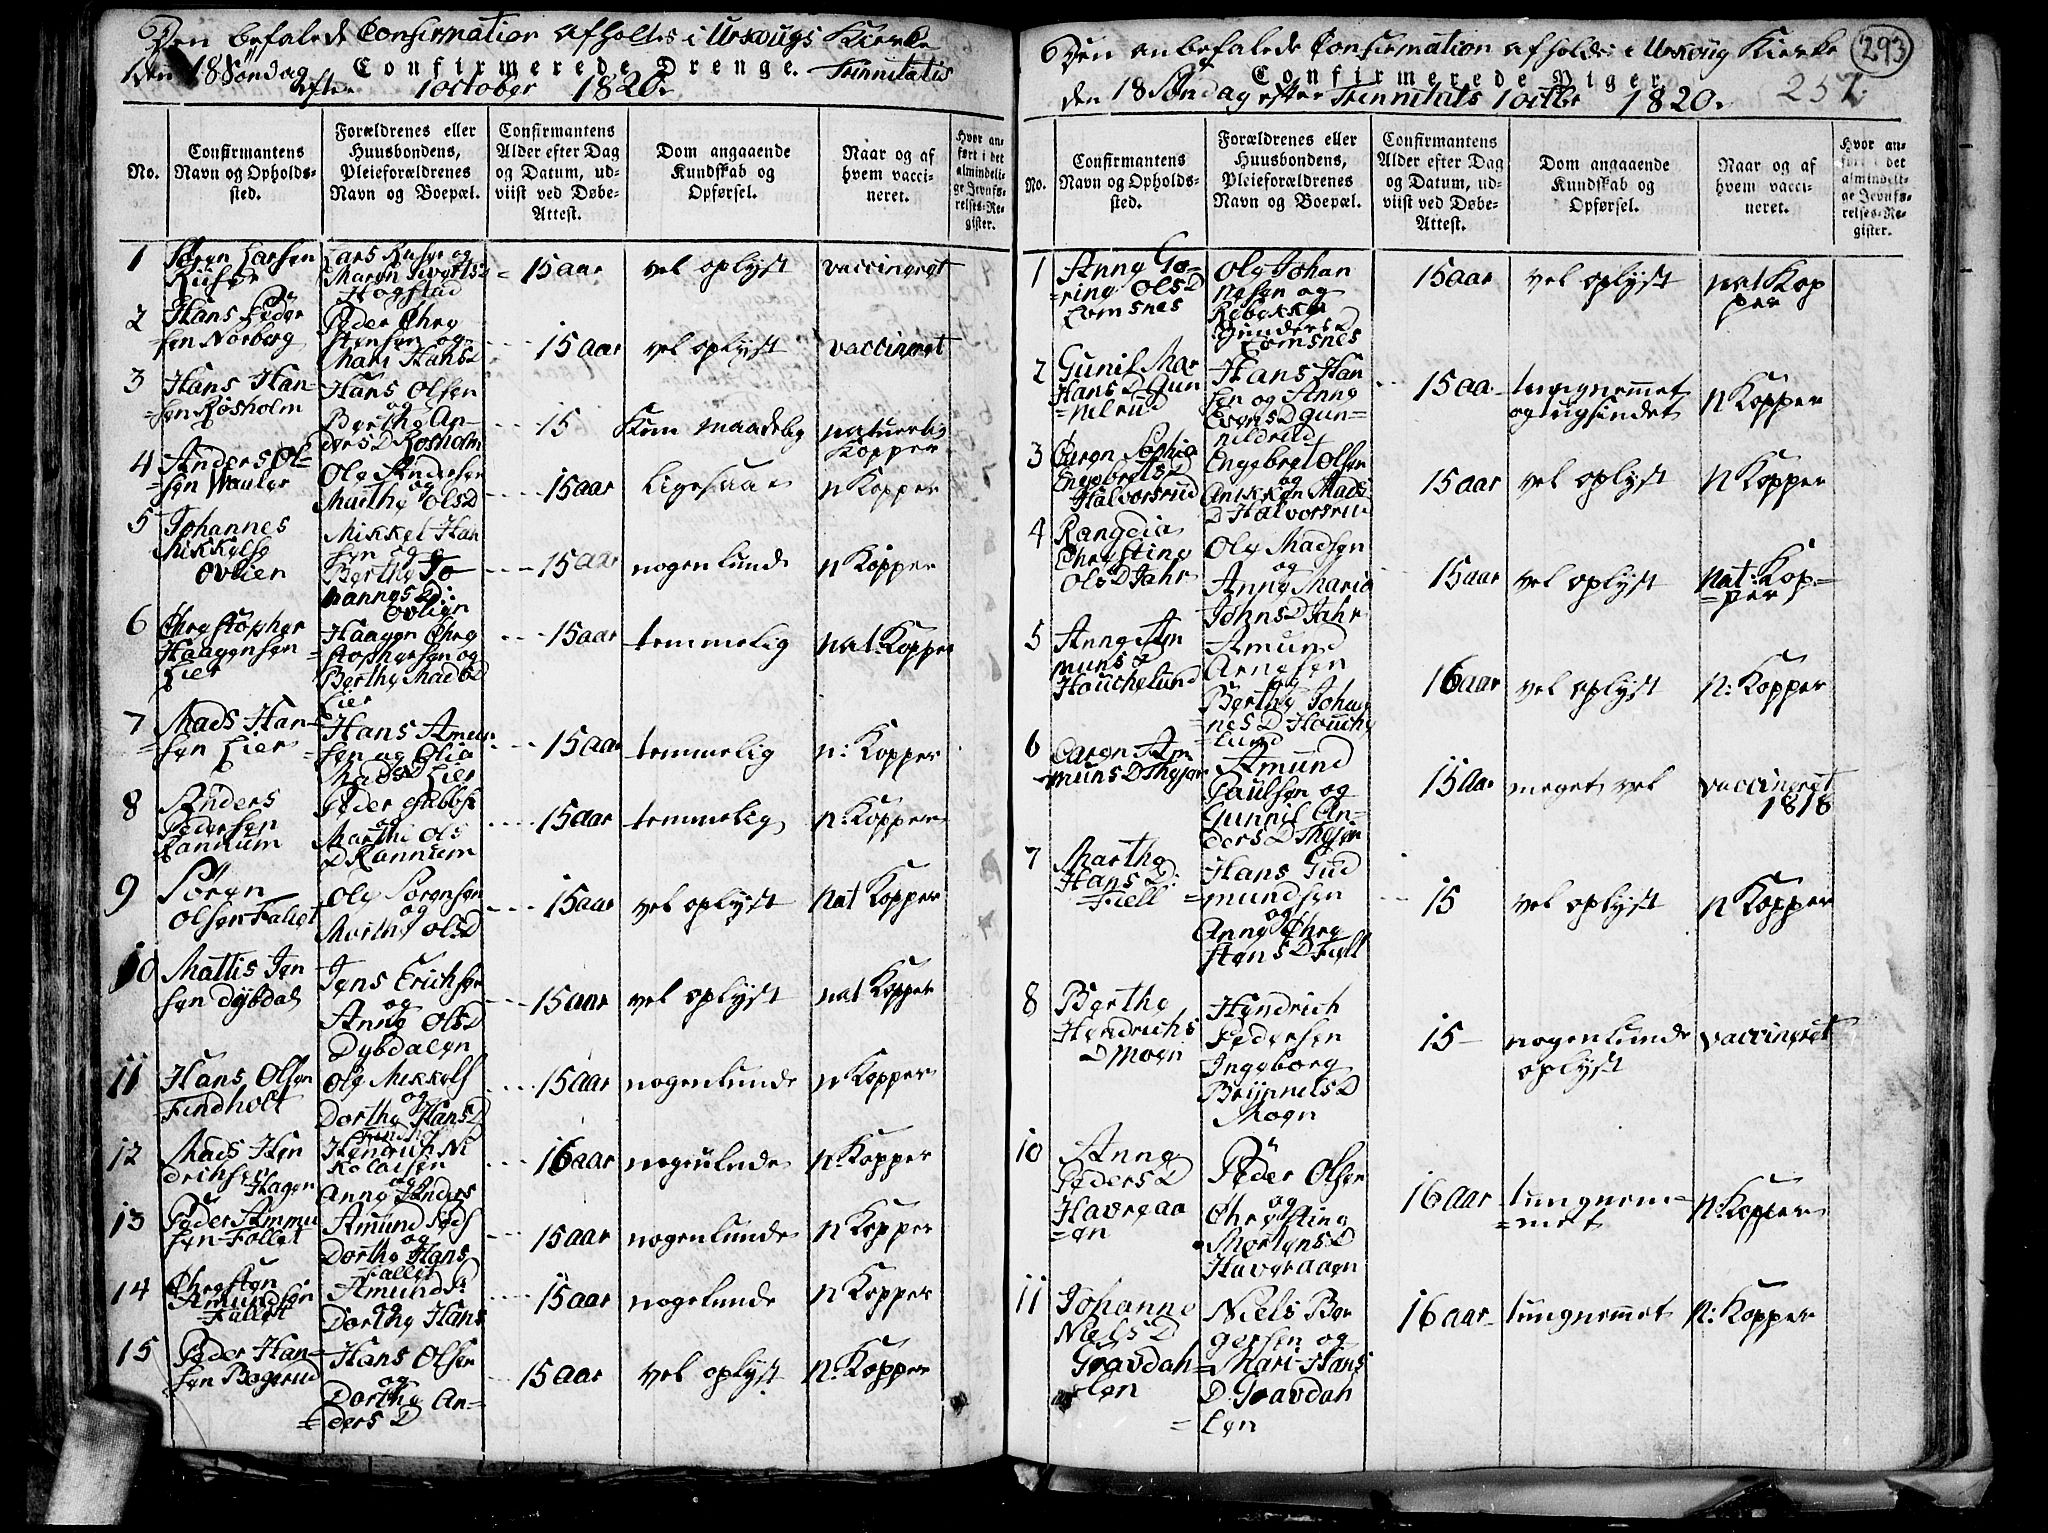 Den befalede Confirmation afholtes i Urskougs Kierke
Den 18 Søndag Confirmerede Drenge. Trinnitatis
efter 1 october 1820.
No.
Confirmantens
Navn og Opholds-
sted.
Forældrenes eller
Huusbondens,
Pleieforældrenes
Navn og Boepæl.
Confirmantens
Alder efter Dag
og Datum, ud-
viist ved Døbe-
Attest.
Dom angaaende
Kundskab og
Opførsel.
Naar og af
hvem vacci-
neret.
Hvor an-
ført i det
almindeli-
ge Jevnfø-
relses-Re-
gister.
1
Søren Larsen
Lars
og
Maren
Hogstad
15 aar
vel oplyst
vaccineret
2
Hans Peder
sen Norberg
Peder Chre
stensen og
Mari Hansd
15 aar
vel oplyst
vaccineret
3
Hans Han-
sen Rosholm
Hans Olsen
og
Berthe An-
ders D Rosholm
15
Kun maadelig
naturlig
Kopper
4
Anders Ol-
sen
Ole Andersen
og
Marthe Ols D
15 aar
Ligesaa
n Kopper
5
Johannes
Mikkelse
Ovlien
Mikkel Han
sen og
Berthe Jo
hannes D:
Ovlien
15 aar
nogenlunde
n Kopper
6
Chrestopher
Haagensen
Lier
Haagen Chre
stophersen og
Berthe Mads D
Lier
15 aar
temmelig
nat: Kopper
7
Mads Han-
sen Lier
Hans Amun
sen og Olia
Mads D Lier
15 aar
temmelig
n: Kopper
8
Anders
Pedersen
Rannum
Peder
og
Marthe Ols
D Rannum
15 aar
temmelig
n: Kopper
9
Søren
Olsen Fallet
Ole Sorensen
og
Marthe Ols D
15 aar
vel oplyst
Nat Kopper
10
Mattis Jen
sen Dybdal
Jens Erichsen
og
Anne Ols D
Dybdalen
15 aar
vel oplyst
nat Kopper
11
Hans Olsen
Findholt
Ole Mikkels
og
Dorthe Hans D
15 aar
nogenlunde
n Kopper
12
Mads Hen
drichsen
Hagen
Hendrich Ni
kolaisen
og
Anne Anders
16 aar
nogenlunde
n: Kopper
13
Peder Ammu
sen Fallet
Amund
og
Dorthe Hans
Fallet
15 aar
nogenlunde
n Kopper
14
Chresten
Amundsen
Fallet
Amund
Dorthe Hans
15 aar
nogelunde
n Kopper
15
Peder Han-
sen Bogerud
Hans Olsen
og
Dorthe An-
ders D
15 aar
vel oplyst
n: Kopper
Den anbefalede Confirmation afholdes i Urskoug Kierke
293
Confirmerede Piger
257
den 18 Søndag efter Trinnitats 1 octbr 1820.
No.
Confirmantens
Navn og Opholds-
sted.
Forældrenes eller
Huusbondens,
Pleieforældrenes
Navn og Boepæl.
Confirmantens
Alder efter Dag
og Datum, ud-
viist ved Døbe-
Attest.
Dom angaaende
Kundskab og
Opførsel.
Naar og af
hvem vacci-
neret.
Hvor an-
ført i det
almindeli-
ge Jevnfø-
relses-Re-
gister.
1
Anne
Ols D
Lomsnes
Ole Johan
nesen og
Rebekka
Gunders D
Lomsnes
15 aar
vel oplyst
nat Kop
per
2
Gunil Mar
Hans D Gun
nilrud
Hans Han
sen og Anne
Evens D Gun-
nildrud
15 aa
tungnemmet
n Kopper
3
Caren Sophia
Engebrets D
Halvorsrud
Engebret Olsen
og
Anikken Mads
D Halvorsrud
15 aar
vel oplyst
n Kopper
4
Rangdia
Chrestine
Ols D Jahr
Ole Madsen
og
Anne Maria
Johns D Jahr
15 aar
vel oplyst
Nat: Kop-
per
5
Anne Am
muns D
Houchelund
Amund
Arnesen
og
Berthe Johan
nes D Houche
lund
16 aar
vel oplyst
n: Kopper
6
Caren Am
muns D
Amund
Paulsen og
Gunnil An-
ders D
15 aar
meget vel
vaccineret
1818
7
Marthe
Hans D:
Fiell
Hans Gud
mundsen
og
Anne Chre
stens D Fiell
15
vel oplyst
n Kopper
8
Berthe
Hendrichs
D Moen
Hendrich
Pedersen
Ingeborg
Brynnels D
Moen
15
nogenlunde
oplyst
vaccineret
10
Anne
Peders D
Haveraa
en
Peder Olsen
og
Chrestine
Mortens D
Haveraaen
16 aar
tungnem-
met
n: Kopper
11
Johanne
Niels D
Gravdah
len
Niels Ber
gersen og
Mari Hans
D. Gravdah
len
16 aar
tungnemmet
n: Kopper